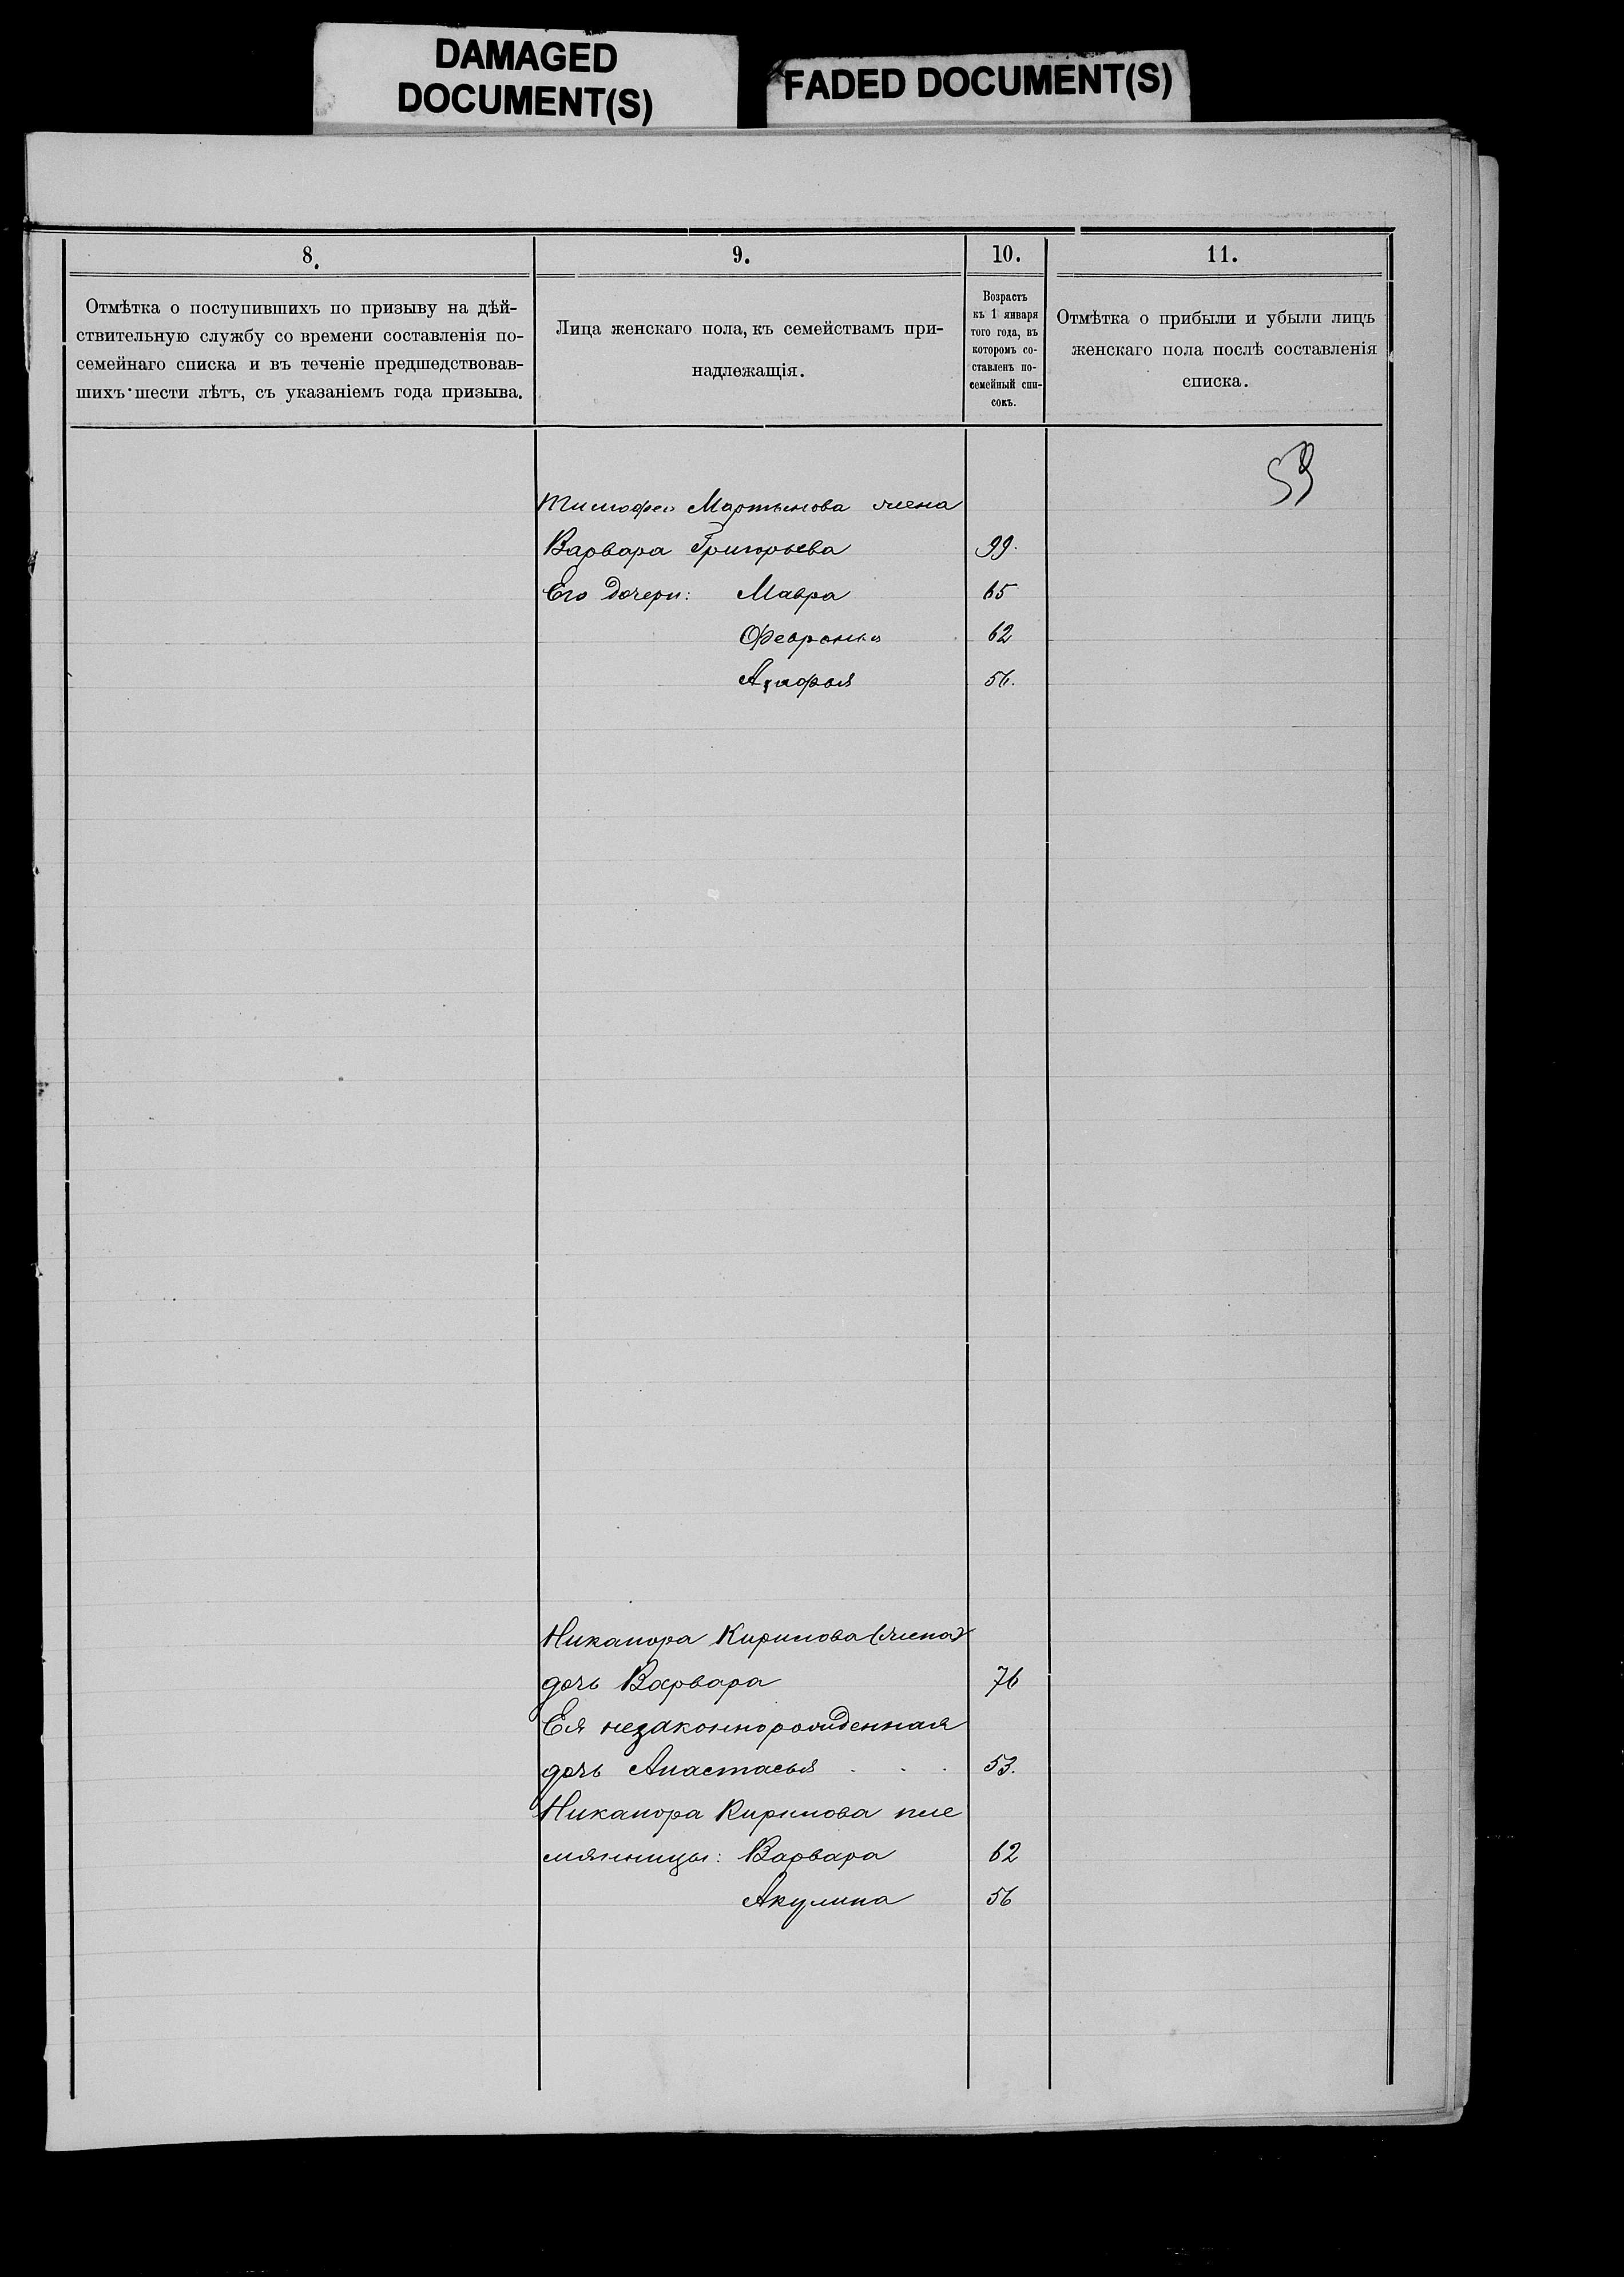 DAMAGED
DOCUMENT(S)
FADED DOCUMENT(S)
8.
Отмѣтка о поступившихъ по призыву на дѣй-
ствительную службу со времени составленія по-
семейнаго списка и въ теченіе предшедствовав-
шихъ шести лѣтъ, съ указаніемъ года призыва.
9.
Лица женскаго пола, къ семействамъ при-
надлежащія.
10.
Возрастъ
къ 1 января
того года, въ
которомъ со-
ставленъ по-
семейный спи-
сокъ.
11.
Отмѣтка о прибыли и убыли лицъ
женскаго пола послѣ составленія
списка.
53
Тимофея Мартынова жена
Варвара Григорьева 99.
Его дочери: Мавра 65
Февронья 62
Агафья 56.
Никанора Кирилова (жена)
дочь Варвара 76
Ея незаконнорожденная
дочь Анастасья . . . 53.
Никанора Кирилова пле
мянницы: Варвара 62
Акулина 56